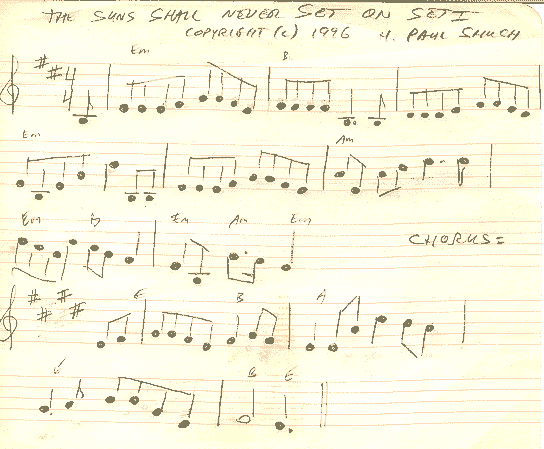 THE SUNS SHALL NEVER SET ON SETI
COPYRIGHT (c) 1996 H. PAUL SHUCH
Em B
4
4
Em Am
Em B Em Am Em CHORUS:
E B A
E B E